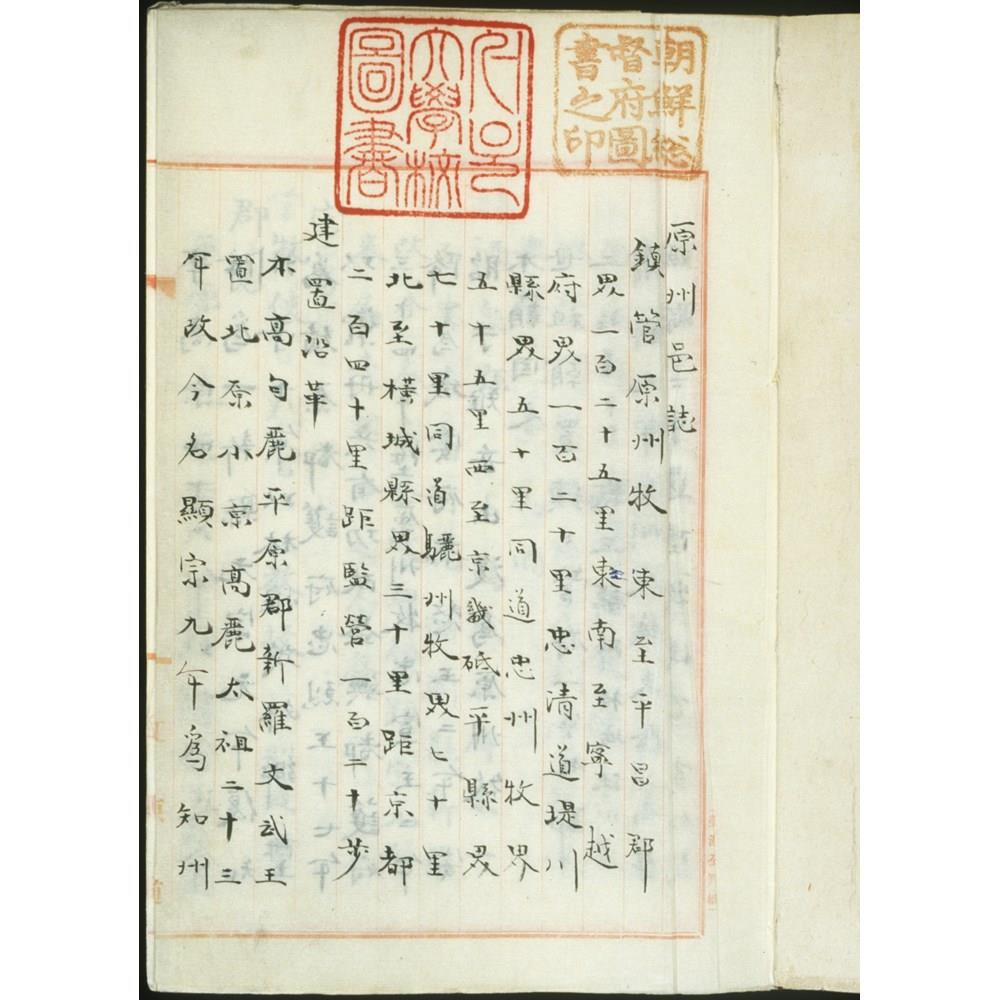 朝鮮總
督府圖
書之印
서울
大學校
圖書
原州邑誌
鎮管原州牧東至平昌郡
界一百二十五里東南至寧越
府界一百二十里忠清道堤川
縣界五十里同道忠州牧界
五十五里西至京畿砥平縣界
七十里同道驪州牧界七十里
北至橫城縣界三十里距京都
二百四十里距監營一百二十步
建置沿革
本高句麗平原郡新羅文武王
置北原小京高麗太祖二十三
年改今名顯宗九年爲知州